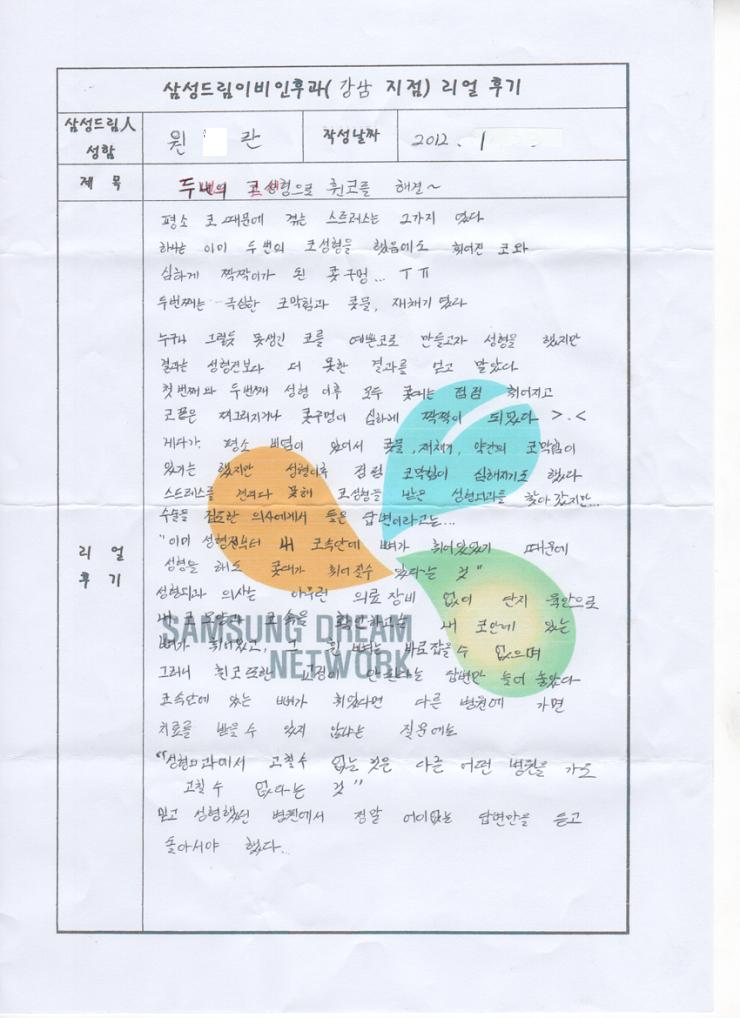 삼성드림이비인후과(강남 지점) 리얼 후기
삼성드림人 성함
원 란
작성날짜
2012. 1
제 목
두번의 코성형으로 휜코를 해결~
리 얼 후 기
평소 코 때문에 겪는 스트레스는 2가지 였다
하나는 이미 두번의 코성형을 했음에도 휘어진 코와
심하게 짝짝이가 된 콧구멍... ㅜㅠ
두번째는 극심한 코막힘과 콧물, 재채기 였다
누구나 그렇듯 못생긴 코를 예쁜코로 만들고자 성형을 했지만
결과는 성형전보다 더 못한 결과를 얻고 말았다
첫번째와 두번째 성형 이후 모두 콧대는 점점 휘어지고
코끝은 찌그러지거나 콧구멍이 심하게 짝짝이 되었다 >.<
게다가 평소 비염이 있어서 콧물, 재채기, 약간의 코막힘이
있기는 했지만 성형이후 점점 코막힘이 심해지기도 했다
스트레스를 견디다 못해 코성형을 받은 성형외과를 찾아 갔지만...
수술을 집도한 의사에게서 들은 답변이라고는...
"이미 성형전부터 내 코속안에 뼈가 휘어있었기 때문에
성형을 해도 콧대가 휘어질수 있다는 것"
성형외과 의사는 아무런 의료장비 없이 단지 육안으로
내 코모양과 코속을 확인하고는 내 코안에 있는
뼈가 휘어있고, 그 휜 뼈는 바로잡을수 없으며
그러니 휜코 또한 교정이 안된다는 답변만 늘어 놓았다
코속안에 있는 뼈가 휘었다면 다른 병원에 가면
치료를 받을 수 있지 않냐는 질문에도
"성형외과에서 고칠수 없는 것은 다른 어떤 병원을 가도
고칠 수 없다는 것"
믿고 성형했던 병원에서 정말 어이없는 답변만을 듣고
돌아서야 했다..
SAMSUNG DREAM
NETWORK